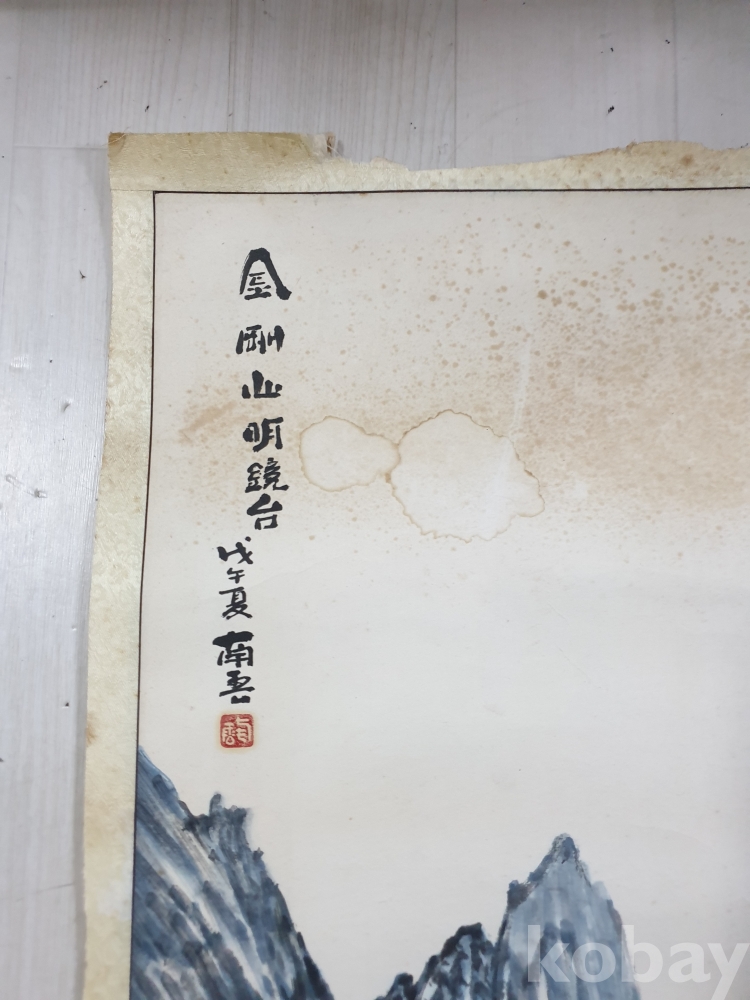 金剛山明鏡台
戊午夏
南雲
kobay